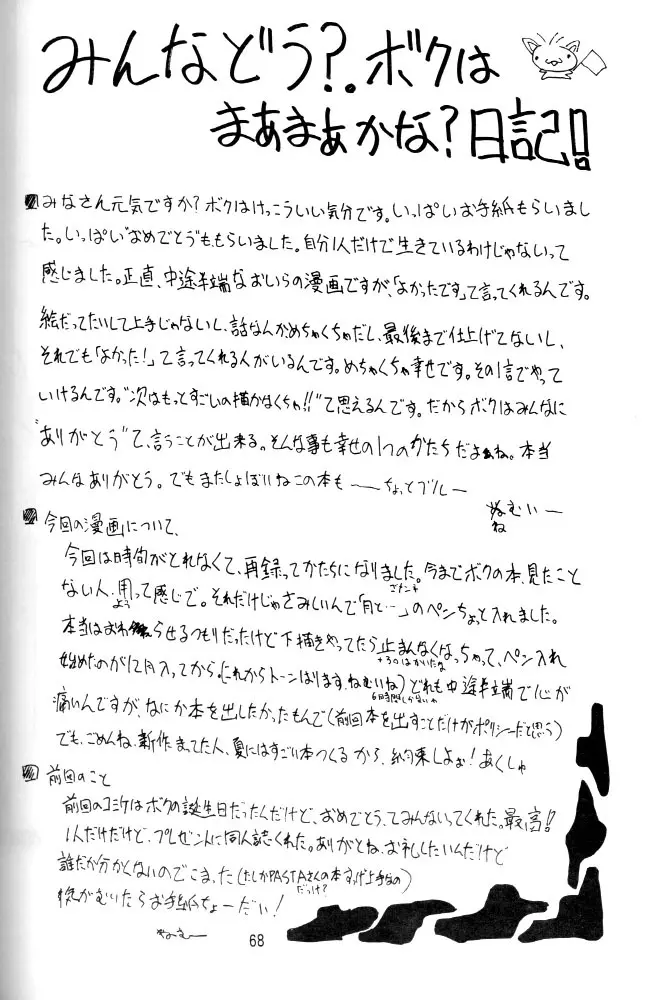 みんなどう?。ボクは
まあまあかな?日記!!
みなさん元気ですか?ボクはけっこういい気分です。いっぱいお手紙もらいまし
た。いっぱい"おめでとう"ももらいました。自分1人だけで生きているわけじゃないって
感じました。正直、中途半端なおいらの漫画ですが、「よかったです」って言ってくれるんです。
絵だってたいして上手じゃないし、話なんかめちゃくちゃだし、最後まで仕上げてないし、
それでも「よかった!」て言ってくれる人がいるんです。めちゃくちゃ幸せです。その1言でやって
いけるんです。"次はもっとすごいの描かなくちゃ!!"て思えるんです。だからボクはみんなに
"ありがとう"て、言うことが出来る。そんな事も幸せの1つのかたちだよぉね。本当
みんなありがとう。でもまたしょぼいねこの本も──ちょっとブルー
ねむいー
ね
今回の漫画について、
今回は時間がとれなくて、再録ってかたちになりました。今までボクの本、見たこと
ない人、用って感じで。それだけじゃさみしいんで「月と…」のペンちょっと入れました。
よう
本当はおわらせるつもりだったけど下描きやってたら止まんなくなっちゃって、ペン入れ
始めたのが12月入ってから。(これからトーンはります、ねむいね)どれも中途半端で心が
痛いんですが、なにか本を出したかったもんで(前回本を出すことだけがポリシーだと思う)
でも、ごめんね、新作まってた人、夏にはすごい本つくるから、約束しよぉ!あくしゅ
前回のこと
前回のコミケはボクの誕生日だったんだけど、おめでとう、てみんないってくれた。最高!!
1人だけだけど、プレゼントに同人誌くれた。ありがとね、お礼したいんだけど
誰だか分かんないのでこまった(たしかPASTAさんの本、すっげ上手なの)
だっけ?
気がむいたらお手紙ちょーだい!
ねむー
68